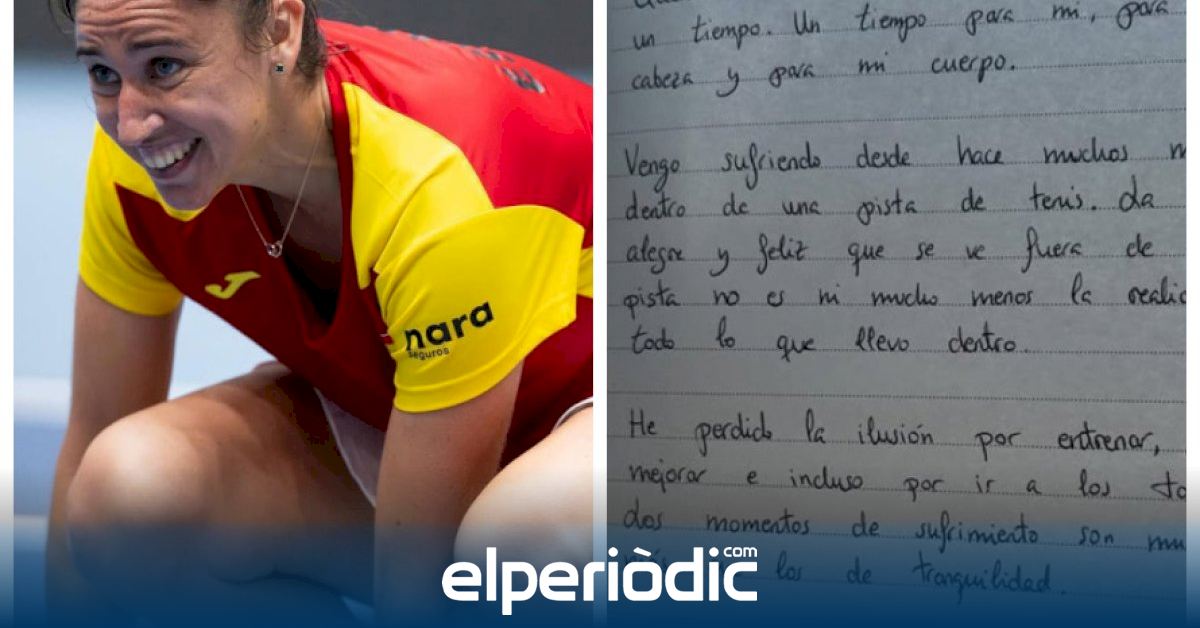 nara
seguros
un tiempo. Un tiempo para mi, para
cabeza y para mi cuerpo.
Vengo sufriendo desde hace muchos m
dentro de una pista de tenis. La
alegre y feliz que se ve fuera de
pista no es ni mucho menos la realid
todo lo que llevo dentro.
He perdido la ilusión por entrenar,
mejorar e incluso por ir a los to
dos momentos de sufrimiento son mu
los de tranquilidad.
elperiòdic.com